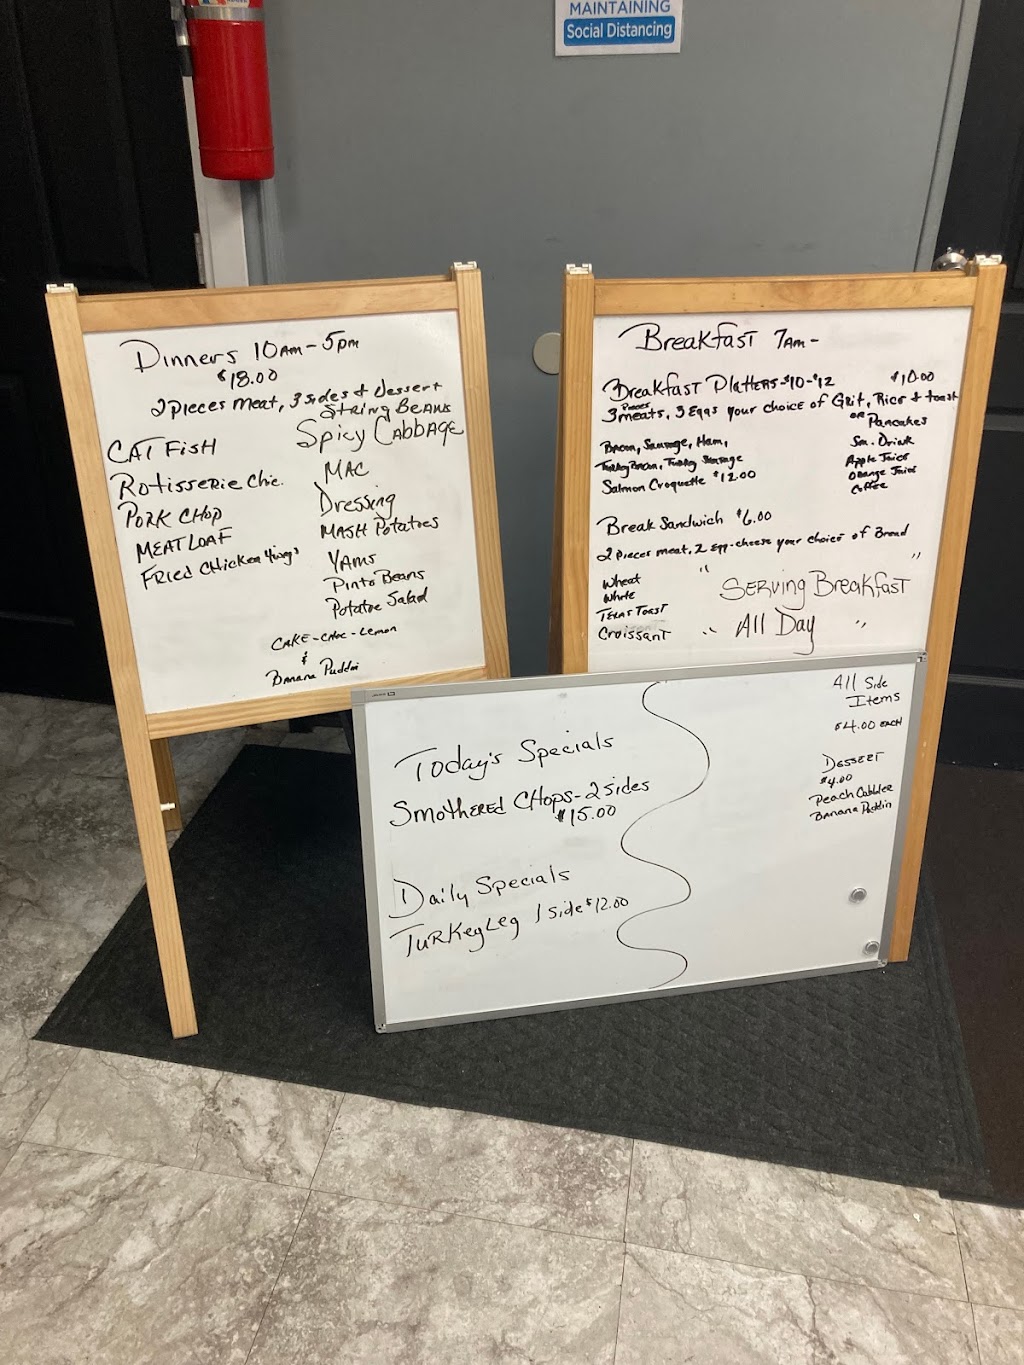 MAINTAINING
Social Distancing
Dinners 10am - 5pm
$18.00
2 pieces meat, 3 sides & Dessert
CATFISH
Rotisserie Chic.
PORK CHOP
MEATLOAF
FRIED CHICKEN 4wings
STRING BEANS
Spicy CABBAGE
MAC
Dressing
MASH Potatoes
YAMS
Pinto Beans
Potatoe Salad
CAKE - CHOC - Lemon
&
Banana Puddin
Breakfast 7am -
Breakfast Platters - $10 - $12 $10.00
3 pieces meats, 3 Eggs your choice of Grit, Rice & toast
or Pancakes
Bacon, Sausage, Ham,
Turkey Bacon, Turkey Sausage
Salmon Croquette $12.00
Sm. Drink
Apple Juice
Orange Juice
Coffee
Break Sandwich $6.00
2 pieces meat, 2 egg-cheese your choice of Bread
Wheat
White
TEXAS TOAST
Croissant
" SERVING BREAKFAST "
" All Day "
Today's Specials
Smothered Chops - 2 sides
$15.00
Daily Specials
Turkey Leg 1 side $12.00
All Side
Items
$4.00 EACH
DESSERT
$4.00
Peach Cobbler
Banana Puddin